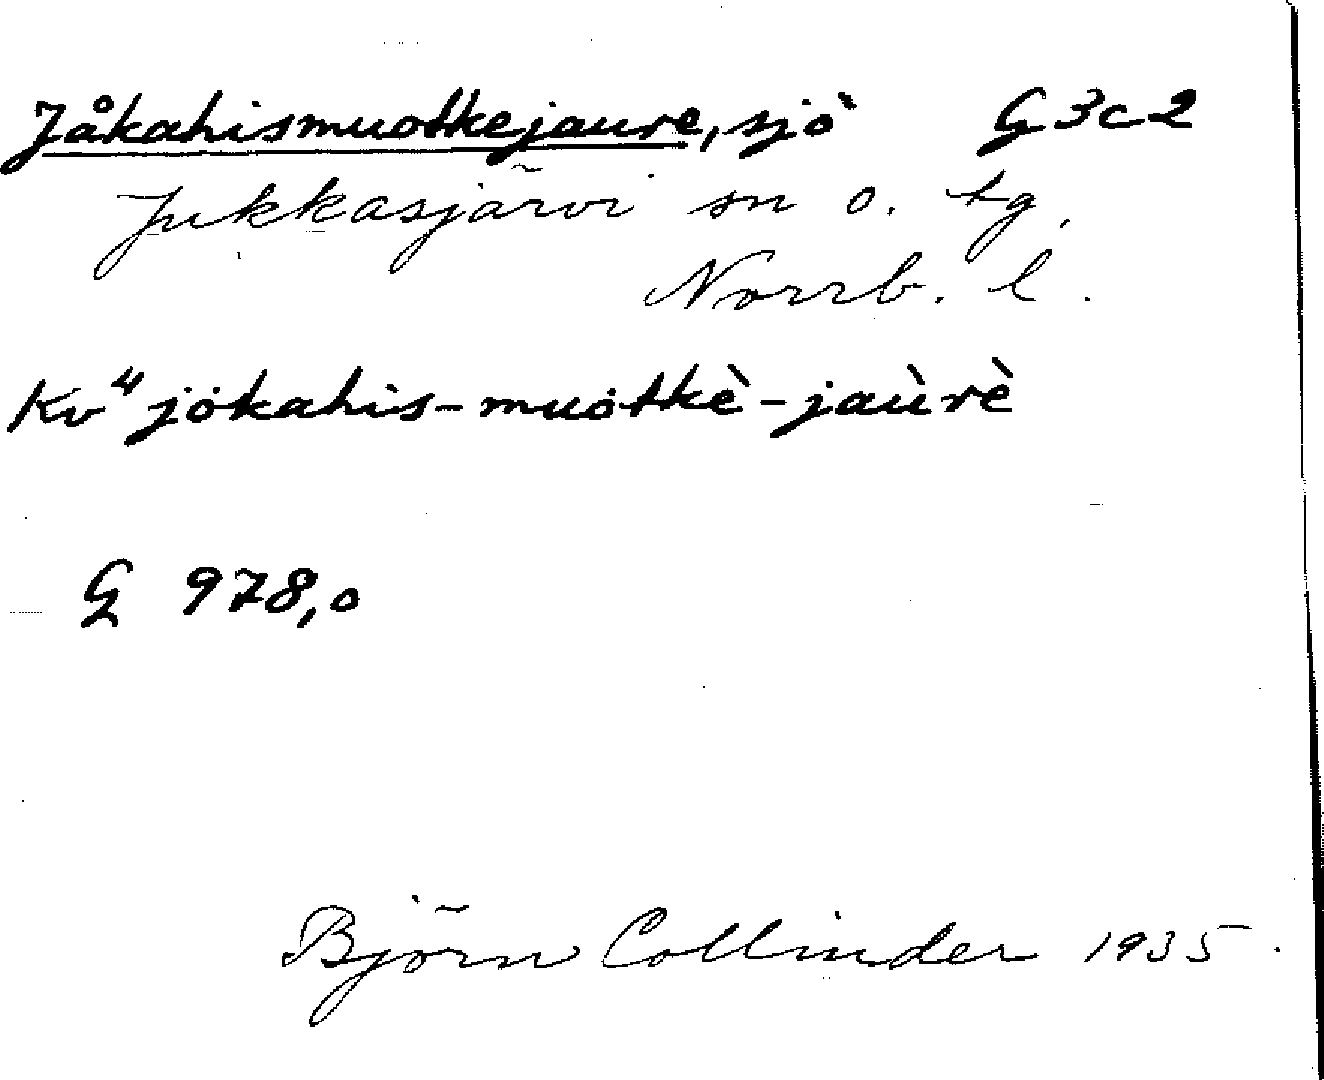 Jåkahismuotkejaure, sjö G 3c2
Jukkasjärvi sn o. tg,
Norrb. l.
Kv" jokahis-muotkè-jaùrè
G 978,0
Björn Collinder 1935.